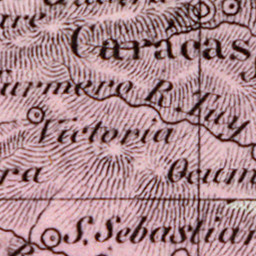 Caracas
Turmero R. Tuy
Victoria
Ocum
ra
S. Sebastian